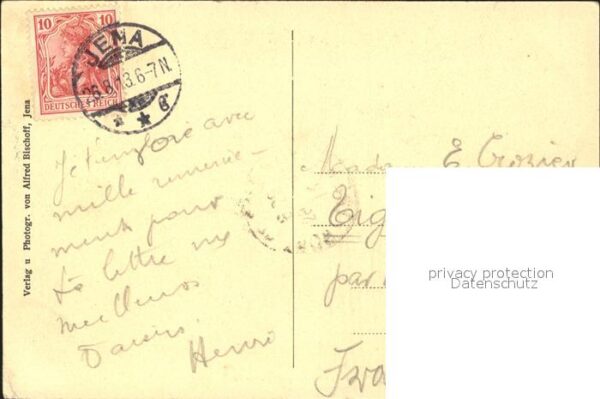 10 10
DEUTSCHES REICH
JENA
26.8.13.6-7N.
Verlag u Photogr. von Alfred Bischoff, Jena
avec
mille remercie-
ments pour
ta lettre mes
meilleurs
Henri
E Crozier
par
privacy protection
Datenschutz